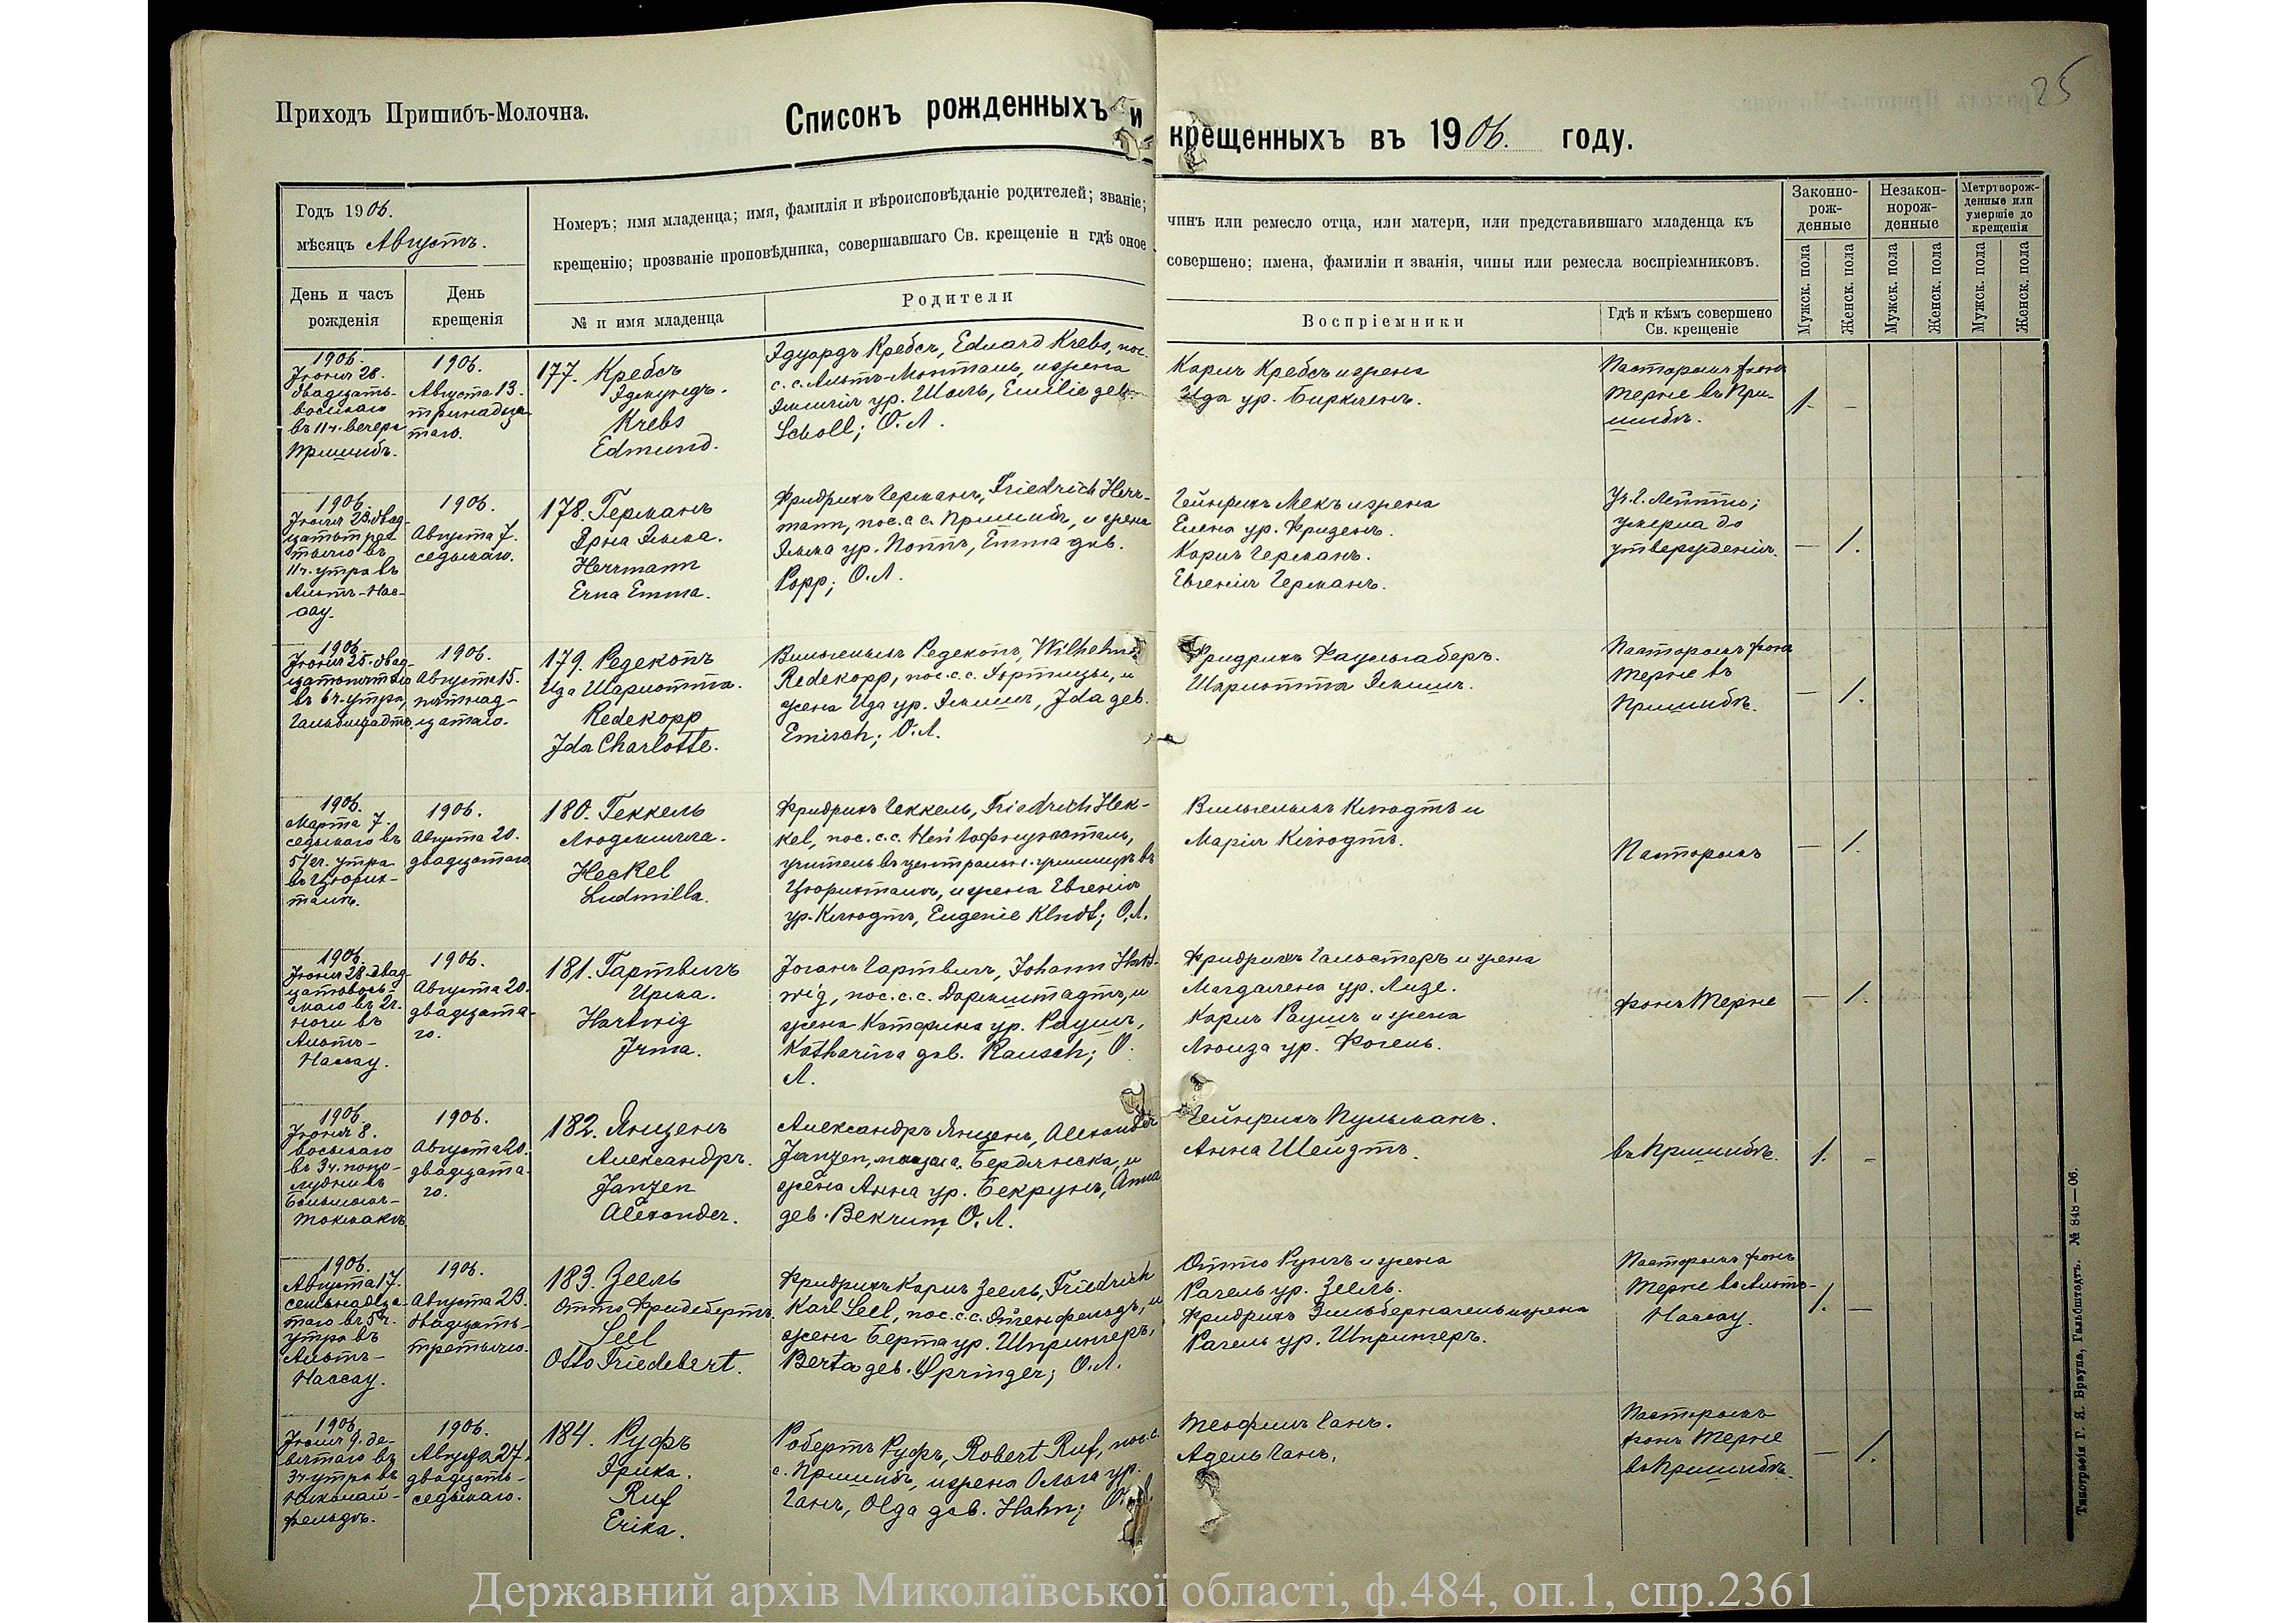 25
Приходъ Пришибъ-Молочна.
Списокъ рожденныхъ и крещенныхъ въ 1906. году.
Годъ 1906.
мѣсяцъ Августъ.
День и часъ рожденія
День крещенія
Номеръ; имя младенца; имя, фамилія и вѣроисповѣданіе родителей; званіе; чинъ или ремесло отца, или матери, или представившаго младенца къ
крещенію; прозваніе проповѣдника, совершавшаго Св. крещеніе и гдѣ оное совершено; имена, фамиліи и званія, чины или ремесла воспріемниковъ.
№ и имя младенца
Родители
Воспріемники
Гдѣ и кѣмъ совершено
Св. крещеніе
Законно-
рож-
денные
Незакон-
норож-
денные
Метртворож-
денные или
умершіе до
крещенія
Мужск. пола
Женск. пола
Мужск. пола
Женск. пола
Мужск. пола
Женск. пола
1906.
Іюня 28.
двадцать-
восьмаго
въ 11 ч. вечера
Пришибъ.
1906.
Августа 13.
тринадца-
таго.
177. Кребсъ
Эдмундъ.
Krebs
Edmund.
Эдуардъ Кребсъ, Eduard Krebs, пос.
с. с. Альтъ-Монталь, и жена
Эмилія ур. Шоль, Emilie geb.
Scholl; О. Л.
Карлъ Кребсъ и жена
Ида ур. Биркленъ.
Пасторомъ фонъ
Терне въ При-
шибѣ.
1. –
1906.
23. двад-
цать тре-
тьяго въ
11 ч. утра въ
Альтъ-Нас-
сау.
1906.
Августа 7.
седьмаго.
178. Германъ
Эрна Эмма.
Herrmann
Erna Emma.
Фридрихъ Германъ, Friedrich Herr-
mann, пос. с. с. Пришибъ, и жена
Эмма ур. Поппъ, Emma geb.
Popp; О. Л.
Гейнрихъ Мекъ и жена
Елена ур. Фризенъ.
Карлъ Германъ.
Евгенія Германъ.
умерла до
утвержденія.
– 1.
1906.
25. двад-
цатопятаго
въ 6 ч. утра,
Гальбштадтъ.
1906.
Августа 15.
пятнад-
цатаго.
179. Редекопъ
Ида Шарлотта.
Redekopp
Ida Charlotte.
Вильгельмъ Редекопъ, Wilhelm
Redekopp, пос. с. с. Хортицы, и
жена Ида ур. Эмишъ, Ida geb.
Emisch; О. Л.
Фридрихъ Фаульгаберъ.
Шарлотта Эмишъ.
Пасторомъ фонъ
Терне въ
Пришибѣ.
– 1.
1906.
Марта 7.
седьмаго въ
5 1/2 ч. утра
въ Цюрих-
таль.
1906.
Августа 20.
двадцатаго
180. Геккель
Людмилла.
Heckel
Ludmilla.
Фридрихъ Геккель, Friedrich Hek-
kel, пос. с. с. Ней
учитель въ центральн. училищѣ въ
Цюрихталь, и жена Евгенія
ур. Клюдтъ, Eugenie Kludt; О. Л.
Вильгельмъ Клюдтъ и
Марія Клюдтъ.
Пасторомъ
– 1.
1906.
28. двад-
цатовось-
маго въ 2 ч.
ночи въ
Альтъ-
Нассау.
1906.
Августа 20.
двадцата-
го.
181. Гартвигъ
Ирма.
Hartwig
Irma.
Іоганъ Гартвигъ, Johann Hart-
wig, пос. с. с. Дармштадтъ, и
жена Катерина ур. Раушъ,
Katharina geb. Rausch; О.
Л.
Фридрихъ Гальстеръ и жена
Магдалена ур. Лизе.
Карлъ Раушъ и жена
Луиза ур. Фогель.
фонъ Терне
– 1.
1906.
8.
восьмаго
въ 3 ч. попо-
лудни въ
Большомъ-
Токмакѣ
1906.
Августа 20.
двадцата-
го.
182. Янценъ
Александръ.
Janzen
Alexander.
Александръ Янценъ, Alexander
Janzen, г. Бердянска, и
жена Анна ур. Бекрунъ, Anna
geb. Bekrun; О. Л.
Гейнрихъ Пульманъ.
Анна Шейдтъ.
въ Пришибѣ.
1. –
1906.
Августа 17.
семнадца-
таго въ 5 ч.
утра въ
Альтъ-
Нассау.
1906.
Августа 23.
двадцать-
третьяго.
183. Зеель
Отто Фридебертъ.
Seel
Otto Friedebert.
Фридрихъ Карлъ Зеель, Friedrich
Karl Seel, пос. с. с. и
жена Берта ур. Шпрингеръ,
Berta geb. Springer; О. Л.
Отто Рунгъ и жена
Рахель ур. Зеель.
Фридрихъ Зильбернагель и жена
Рахель ур. Шпрингеръ.
Пасторомъ фонъ
Терне въ Альтъ-
Нассау.
1. –
1906.
9. де-
вятаго въ
3 ч. утра въ
Николай-
фельдъ.
1906.
Августа 27.
двадцать-
седьмаго.
184. Руфъ
Эрика.
Ruf
Erika.
Робертъ Руфъ, Robert Ruf, пос. с.
с. Пришибъ, и жена Ольга ур.
Ганъ, Olga geb. Hahn; О. Л.
Теофилъ Ганъ.
Адель Ганъ.
Пасторомъ
фонъ Терне
въ Пришибѣ.
– 1.
Типографія Г. Я. Брауна, Гальбштадтъ. № 848—06.
Державний архів Миколаївської області, ф.484, оп.1, спр.2361